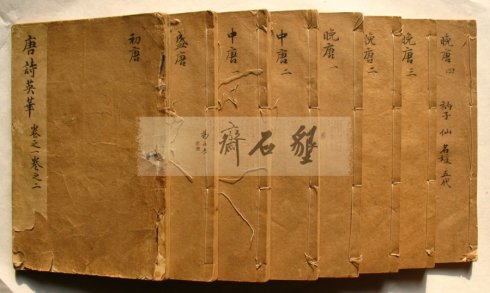 唐詩英華
卷之一卷之二
初唐
盛唐
中唐
中唐 二
晚唐 一
晚唐 二
晚唐 三
晚唐 四
衲子 仙 名媛 五代
墾石齋